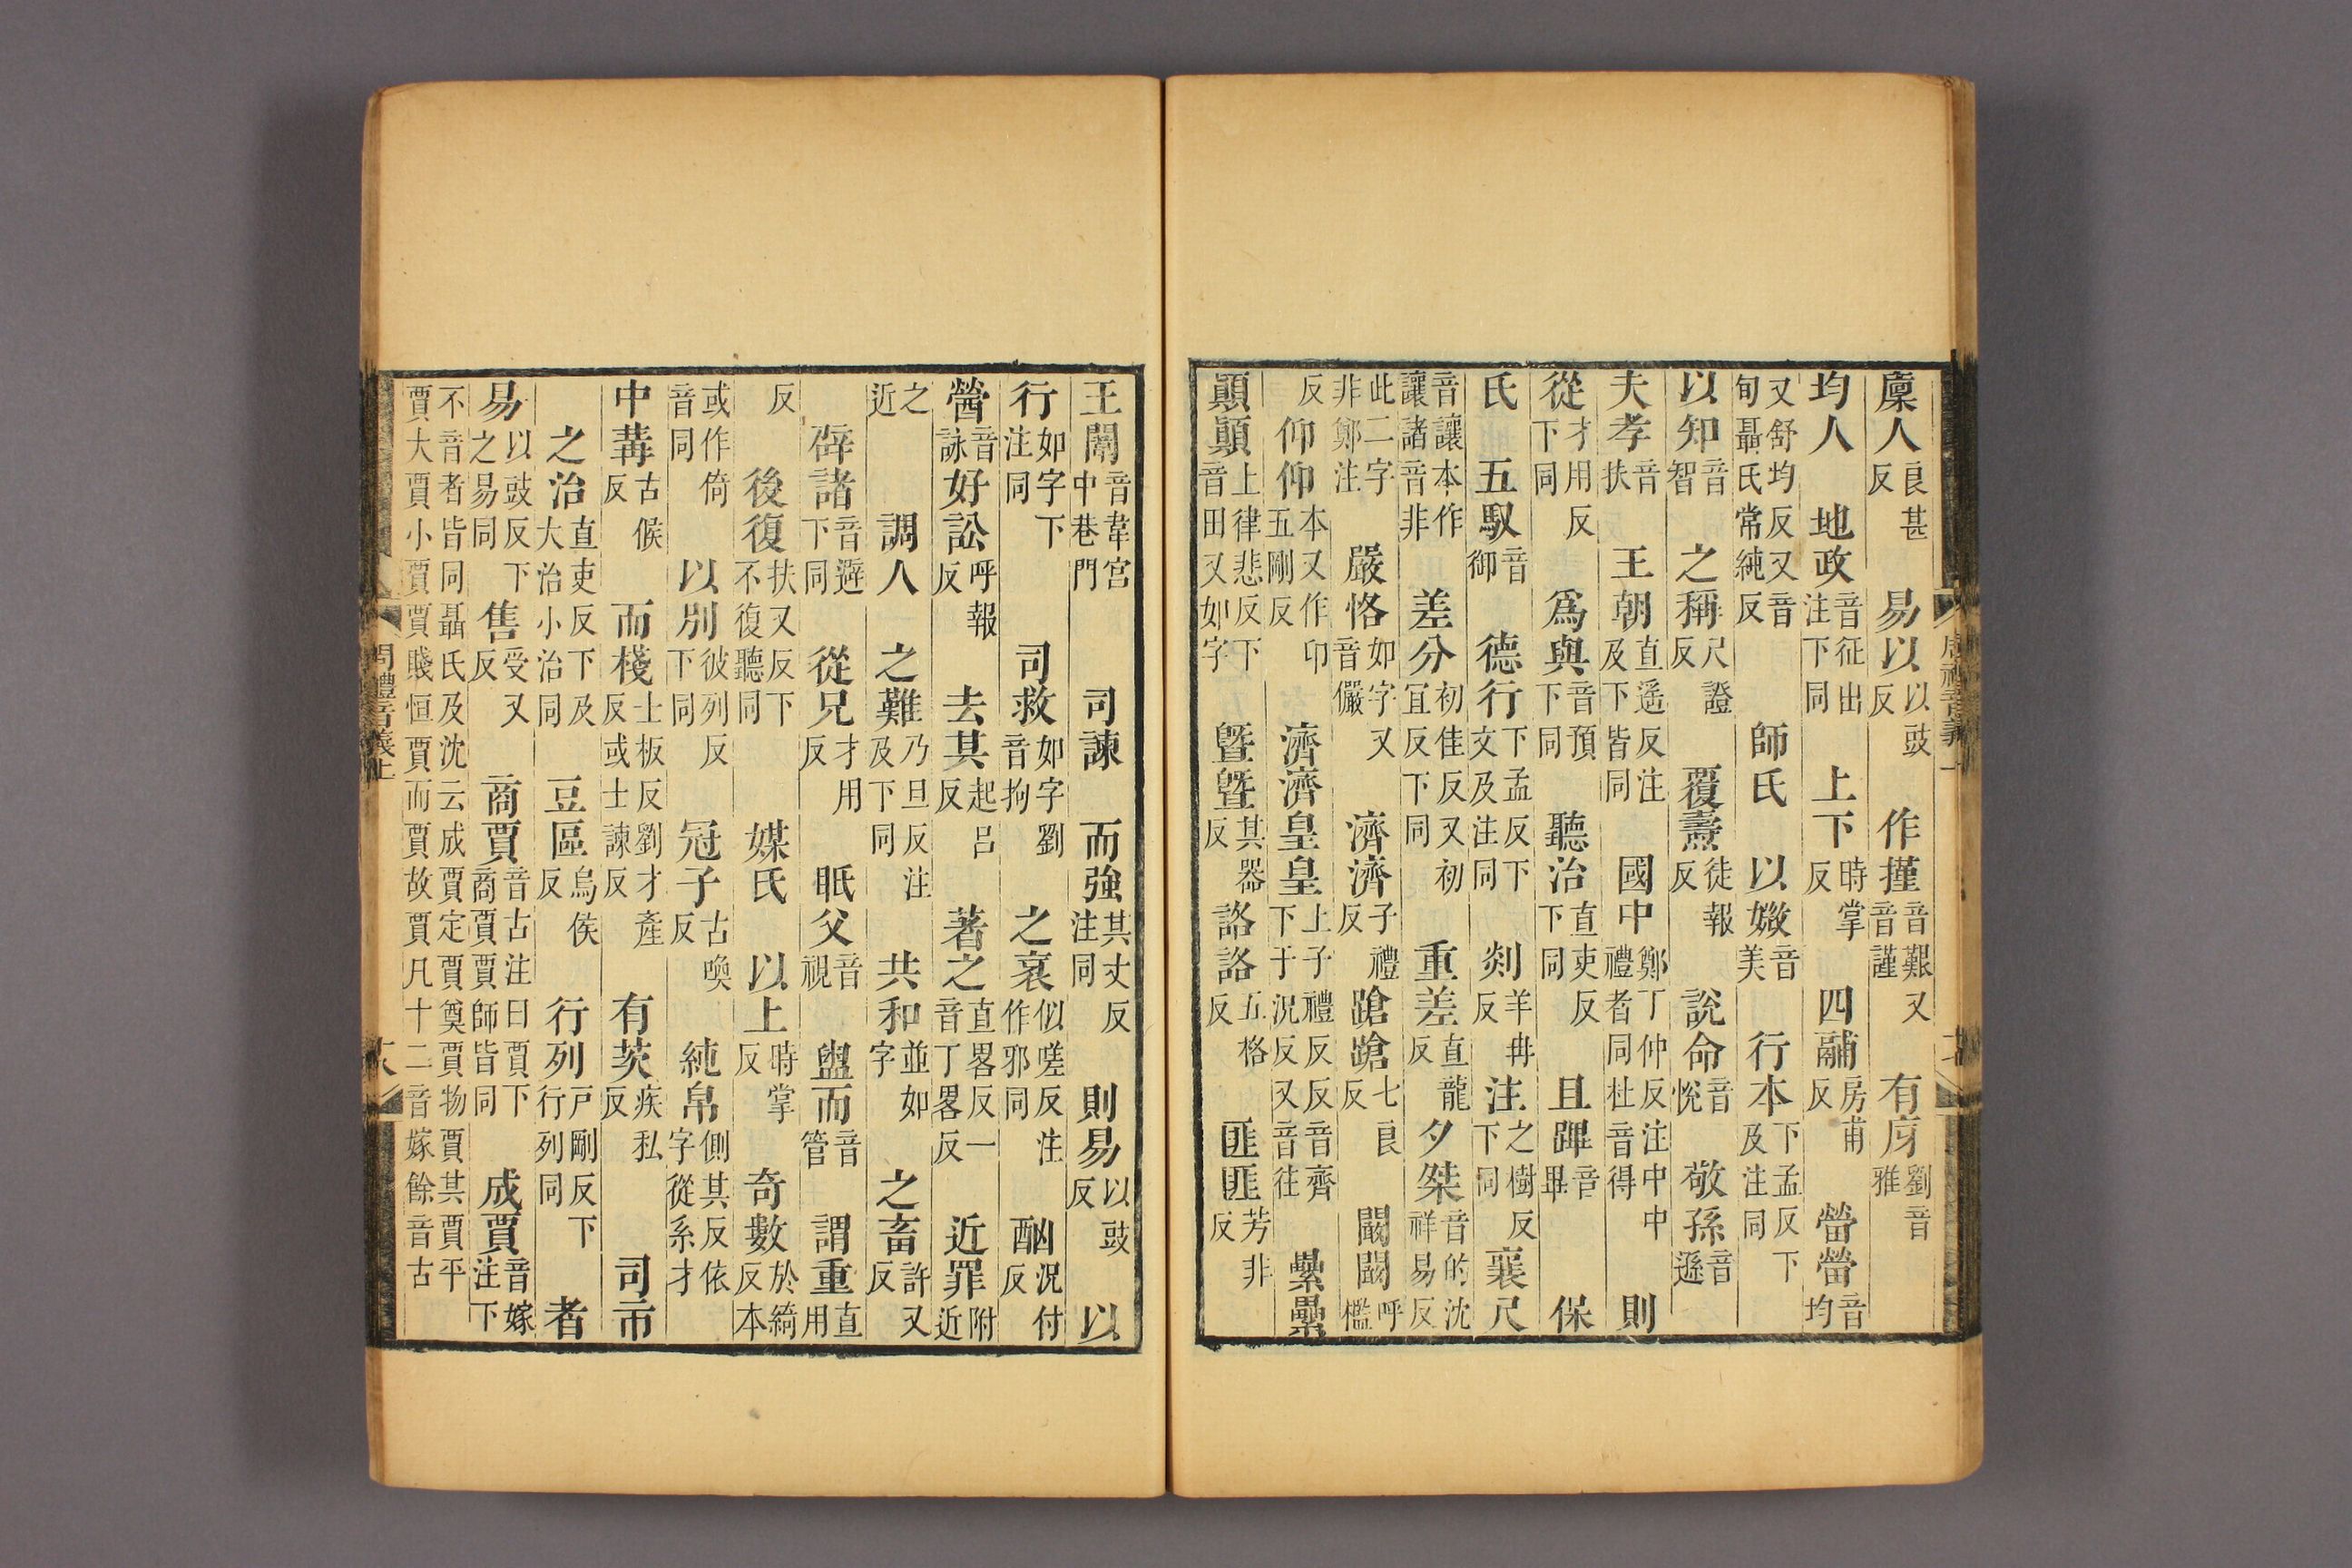 廩人良甚反易以以豉反作㨷音艱又音謹有庌劉音雅
均人地政音征出注下同上下時掌反四鬴房甫反㽦㽦音均
又舒均反又音旬聶氏常純反師氏以媺音美行本下孟反下及注同
以知音智之稱尺證反覆燾徒報反說命音悅敬孫音遜
夫孝音扶王朝直遥反注及下皆同國中鄭丁仲反注中中禮者同杜音得則
從才用反下同爲與音預下同聽治直吏反下同且蹕音畢保
氏五馭音御德行下孟反下文及注同剡羊冉反注之樹反下同襄尺
音讓本作讓諸音非差分初佳反又初宜反下同重差直龍反夕桀音的沈祥易反
此二字非鄭注嚴恪如字又音儼濟濟子禮反蹌蹌七良反闞闞呼檻
反仰仰本又作卬五剛反濟濟皇皇上子禮反反音齊下于況反又音往纍纍
顚顚上律悲反下音田又如字曁曁其器反詻詻五格反匪匪芳非反
王闈音韋宮中巷門司諫而強其丈反注同則易以豉反以
行如字下注同司救如字劉音拘之衺似嗟反注作邪同酗況付反
醟音詠好訟呼報反去其起呂反著之直畧反一音丁畧反近罪附近
之近調人之難乃旦反注及下同共和並如字之畜許又反
辟諸音避下同從兄才用反眂父音視盥而音管謂重直用
反後復扶又反下不復聽同媒氏以上時掌反奇數於綺反本
或作倚音同以別彼列反下同冠子古喚反純帛側其反依字從糸才
中冓古候反而棧士板反劉才產反或士諫反有茨疾私反司市
之治直吏反下及大治小治同豆區烏侯反行列戶剛反下行列同者
易以豉反下之易同售受又反商賈音古注曰賈下商賈賈師皆同成賈音嫁注下
不音者皆同聶氏及沈云成賈定賈奠賈物賈其賈平賈大賈小賈賈賤恒賈而賈故賈凡十二音嫁餘音古
周禮音義上